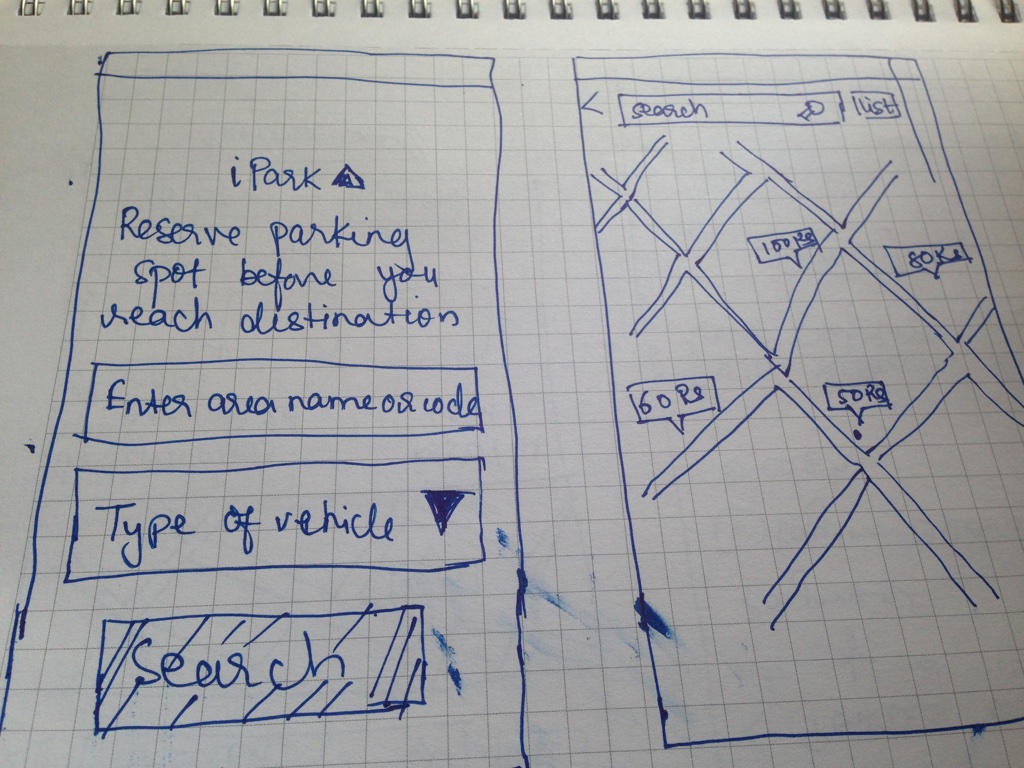 iPark
Reserve parking
spot before you
reach distination
Enter area name or code
Type of vehicle
Search
search
list
100 Rs
80 Rs
60 Rs
50 Rs